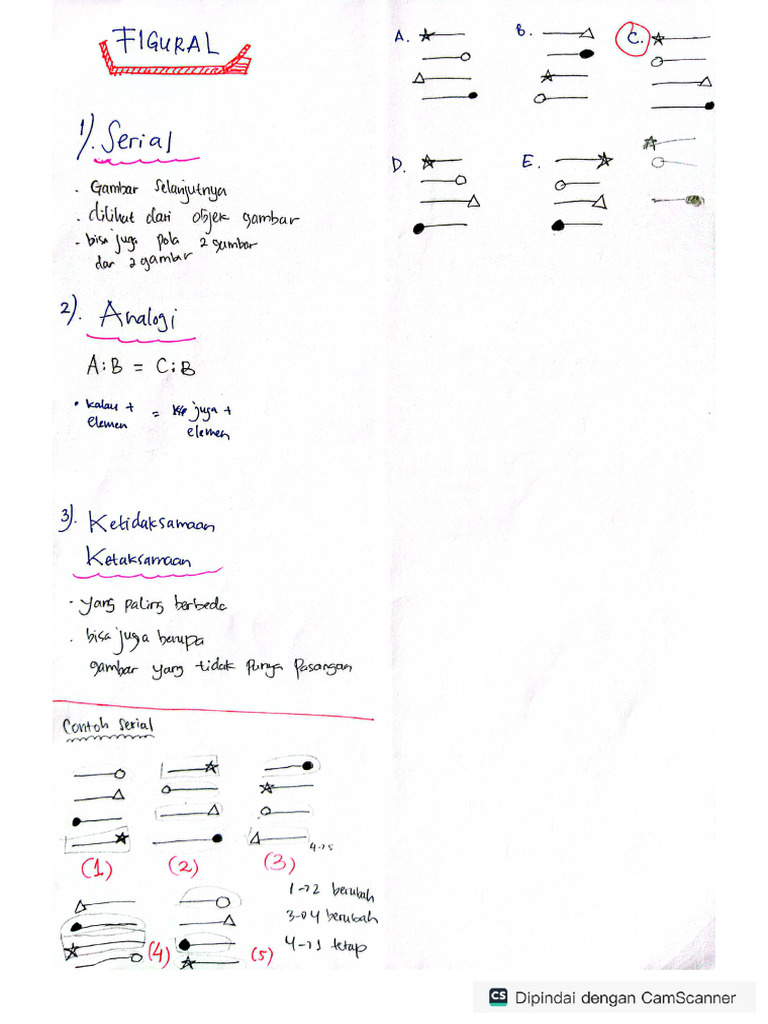 FIGURAL
1). Serial
· Gambar Selanjutnya
· dilihat dari objek gambar
- bisa juga pola 2 gambar
dan 2 gambar
2). Analogi
A:B = C:B
· kalau + = juga +
elemen elemen
3). Ketidaksamaan
Ketaksamaan
- yang paling berbeda
. bisa juga berupa
gambar yang tidak punya pasangan
Contoh serial
(1) (2) (3)
4→5
(4) (5)
1→2 berubah
3→4 berubah
4→5 tetap
A. B. C.
D. E.
CS Dipindai dengan CamScanner